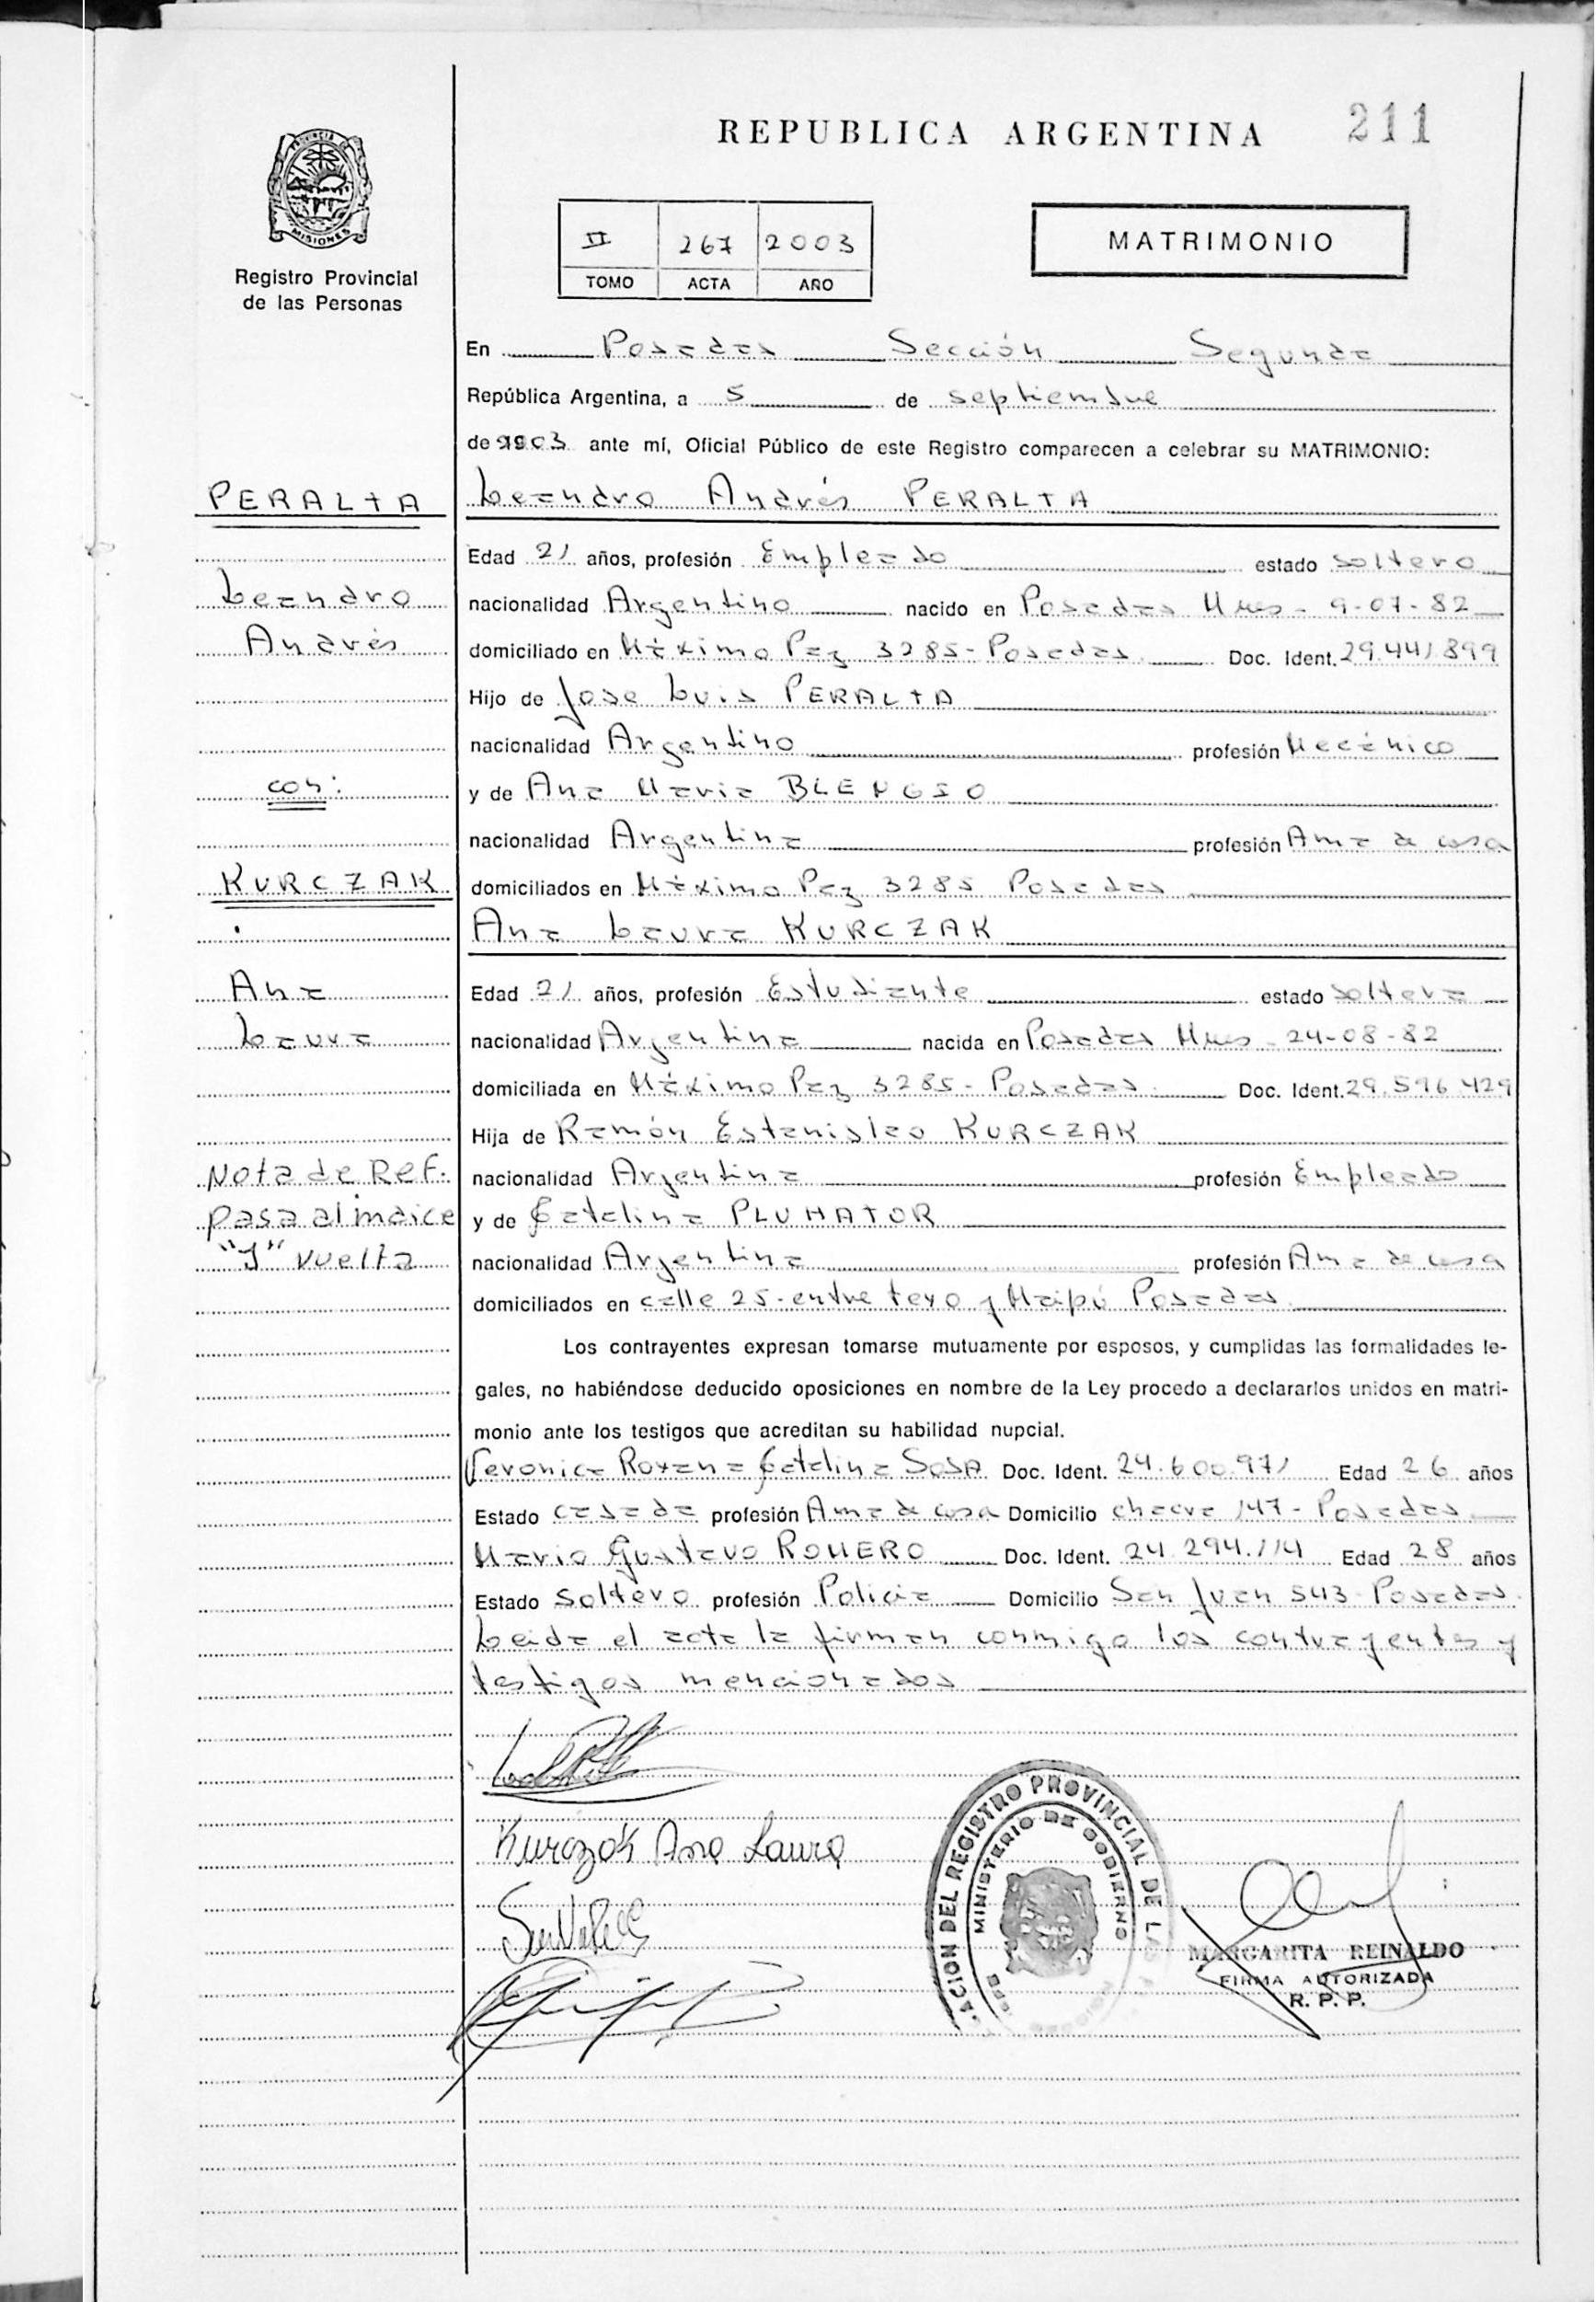 REPUBLICA ARGENTINA 211
PROVINCIA
MISIONES
Registro Provincial
de las Personas
II 267 2003
TOMO ACTA AÑO
MATRIMONIO
En Posadas Sección Segunda
República Argentina, a 5 de septiembre
de 2003 ante mí, Oficial Público de este Registro comparecen a celebrar su MATRIMONIO:
PERALTA
Leandro Andrés PERALTA
Edad 21 años, profesión Empleado estado soltero
Leandro
nacionalidad Argentino nacido en Posadas Mnes - 9-07-82
Andrés
domiciliado en Máximo Paz 3285 - Posadas Doc. Ident. 29.441.899
Hijo de Jose Luis PERALTA
nacionalidad Argentino profesión Mecánico
con:
y de Ana Maria
nacionalidad Argentina profesión Ama de casa
KURCZAK
domiciliados en Máximo Paz 3285 Posadas
Ana Laura KURCZAK
Ana
Edad 21 años, profesión Estudiante estado soltera
Laura
nacionalidad Argentina nacida en Posadas Mnes - 24-08-82
domiciliada en Máximo Paz 3285 - Posadas Doc. Ident. 29.596.429
Hija de Ramón Estanislao KURCZAK
Nota de Ref.
nacionalidad Argentina profesión Empleado
pasa al indice
y de Catalina PLUHATOR
"J" vuelta
nacionalidad Argentina profesión Ama de casa
domiciliados en calle 25 - entre y Maipú Posadas
Los contrayentes expresan tomarse mutuamente por esposos, y cumplidas las formalidades le-
gales, no habiéndose deducido oposiciones en nombre de la Ley procedo a declararlos unidos en matri-
monio ante los testigos que acreditan su habilidad nupcial.
Veronica Roxana Catalina SOSA Doc. Ident. 24.600.971 Edad 26 años
Estado casada profesión Ama de casa Domicilio chacra 147 - Posadas
Mario Gustavo ROMERO Doc. Ident. 24.294.114 Edad 28 años
Estado soltero profesión Policia Domicilio San Juan 543 - Posadas
Leida el acta la firman conmigo los contrayentes y
testigos mencionados
Kurczak Ana Laura
ACION DEL REGISTRO PROVINCIAL DE LAS
MINISTERIO DE GOBIERNO
MARGARITA REINALDO
FIRMA AUTORIZADA
R. P. P.